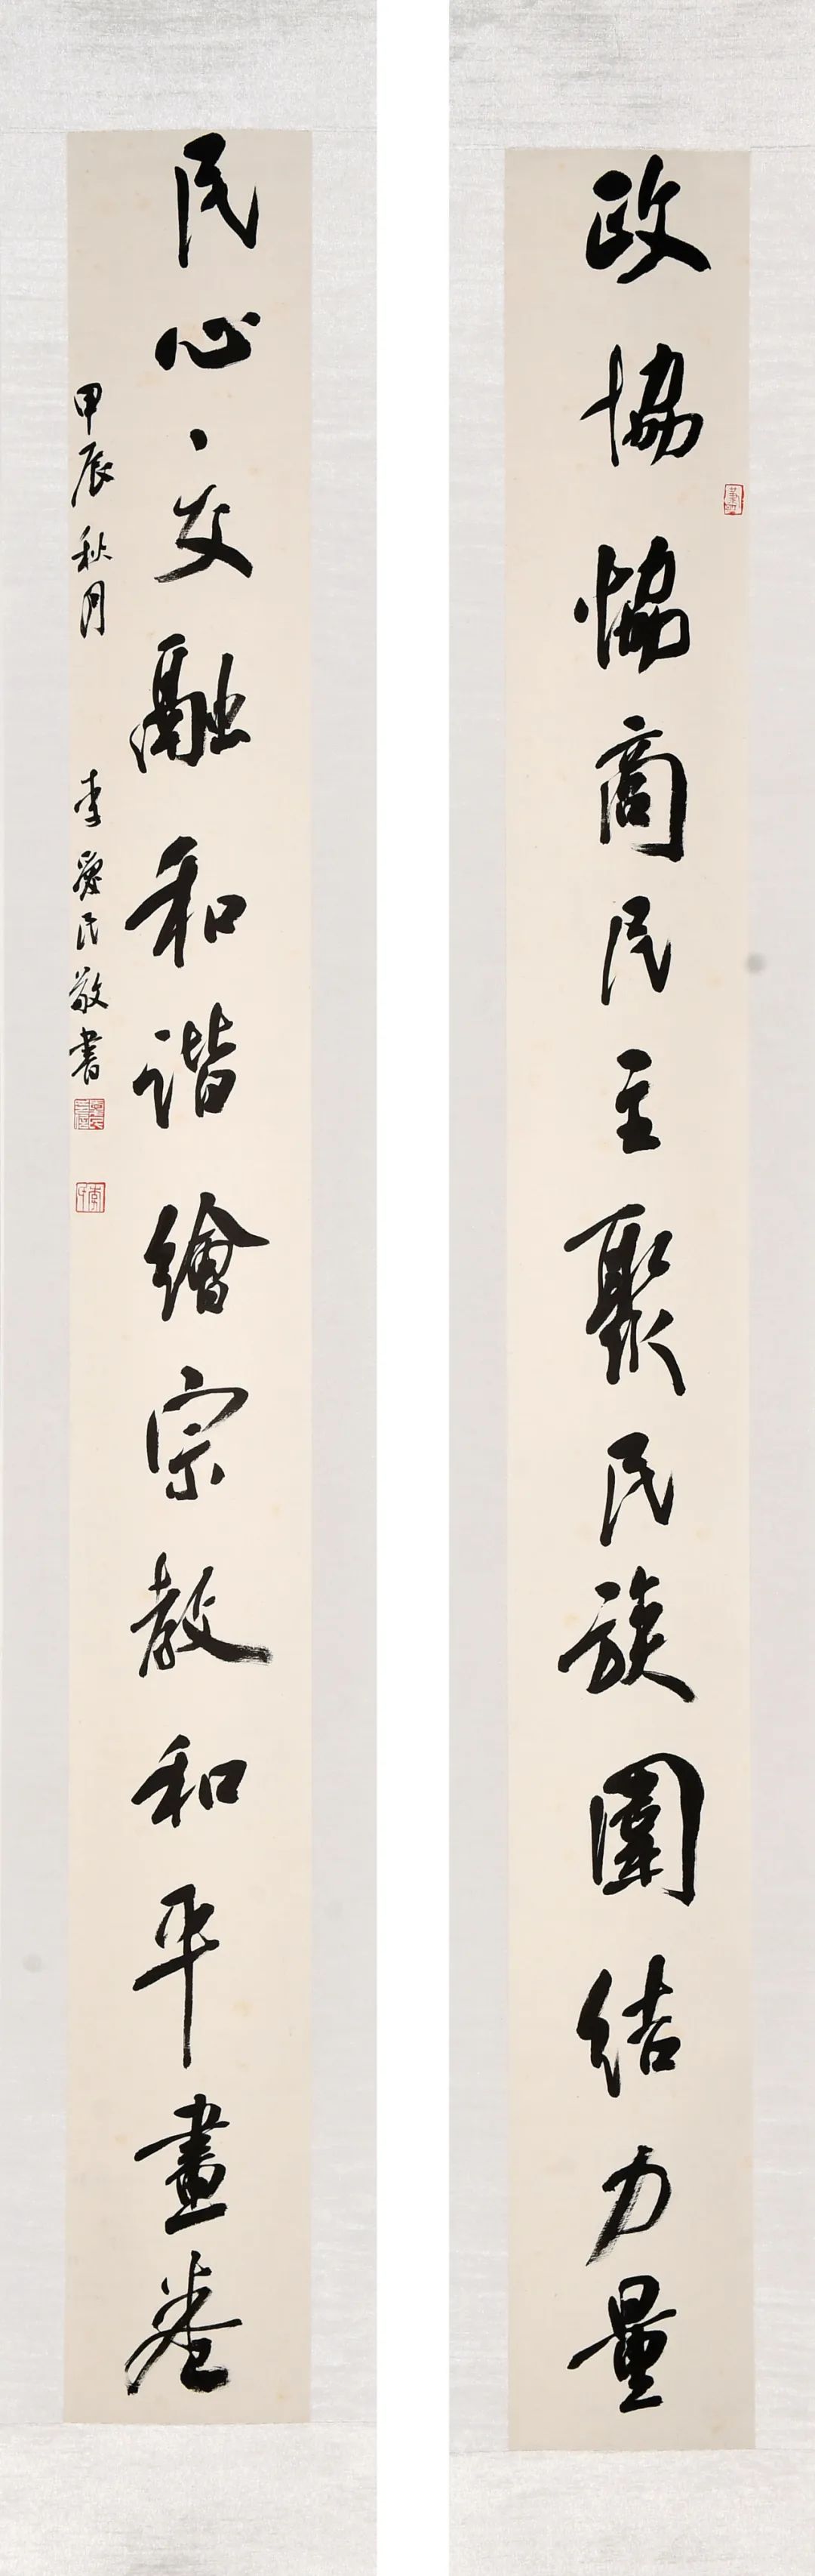 政協協商民主聚民族團結力量
民心交融和谐繪宗教和平畫卷
甲辰秋月 李愛民敬書